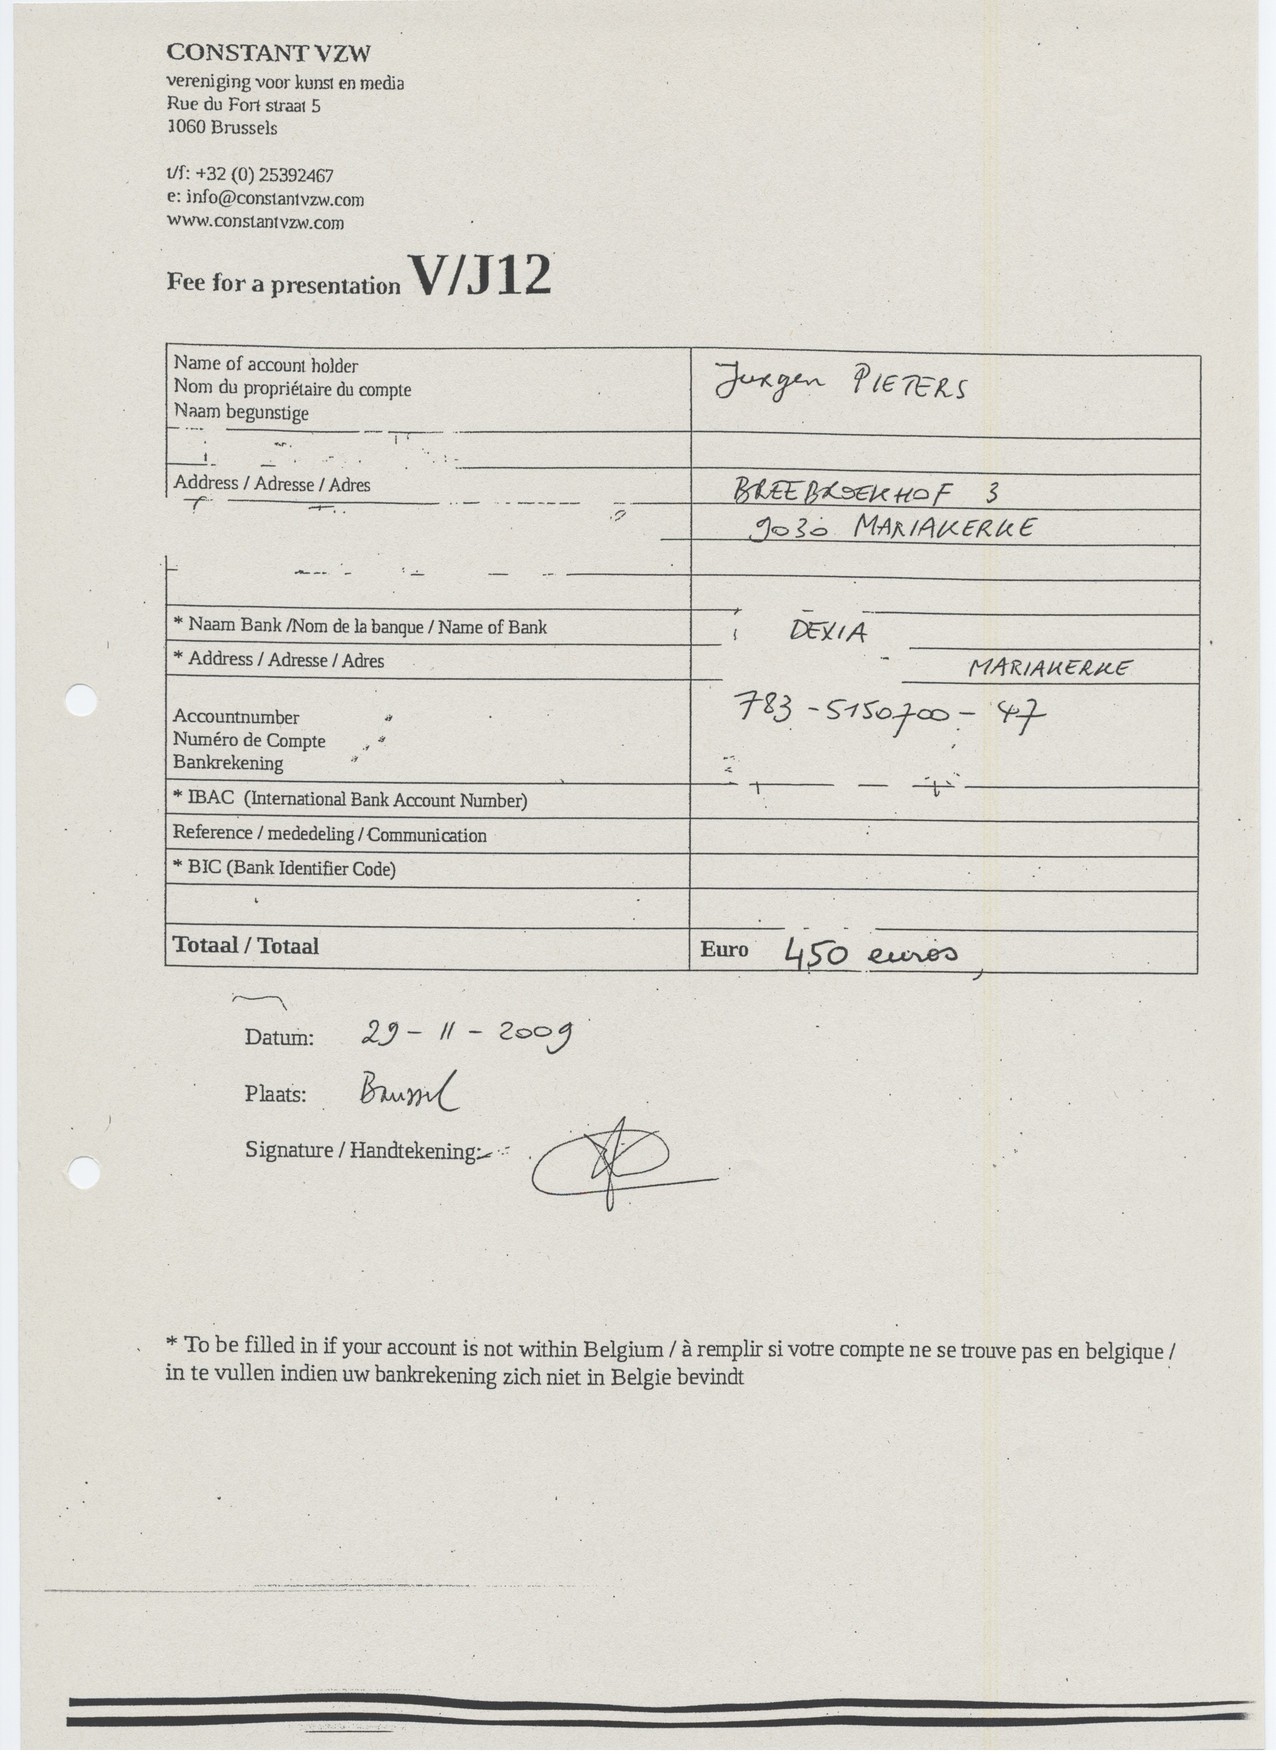 CONSTANT VZW
vereniging voor kunst en media
Rue du Fort straat 5
1060 Brussels
t/f: +32 (0) 25392467
e: info@constantvzw.com
www.constantvzw.com
Fee for a presentation V/J12
Name of account holder
Nom du propriétaire du compte
Naam begunstige
Jurgen PIETERS
Address / Adresse / Adres
BREEBROEKHOF 3
9030 MARIAKERKE
* Naam Bank /Nom de la banque / Name of Bank
DEXIA
* Address / Adresse / Adres
MARIAKERKE
Accountnumber
Numéro de Compte
Bankrekening
783 - 5150700 - 47
* IBAC (International Bank Account Number)
Reference / mededeling / Communication
* BIC (Bank Identifier Code)
Totaal / Totaal
Euro 450 euros
Datum: 29 - 11 - 2009
Plaats: Brussel
Signature / Handtekening:
* To be filled in if your account is not within Belgium / à remplir si votre compte ne se trouve pas en belgique /
in te vullen indien uw bankrekening zich niet in Belgie bevindt